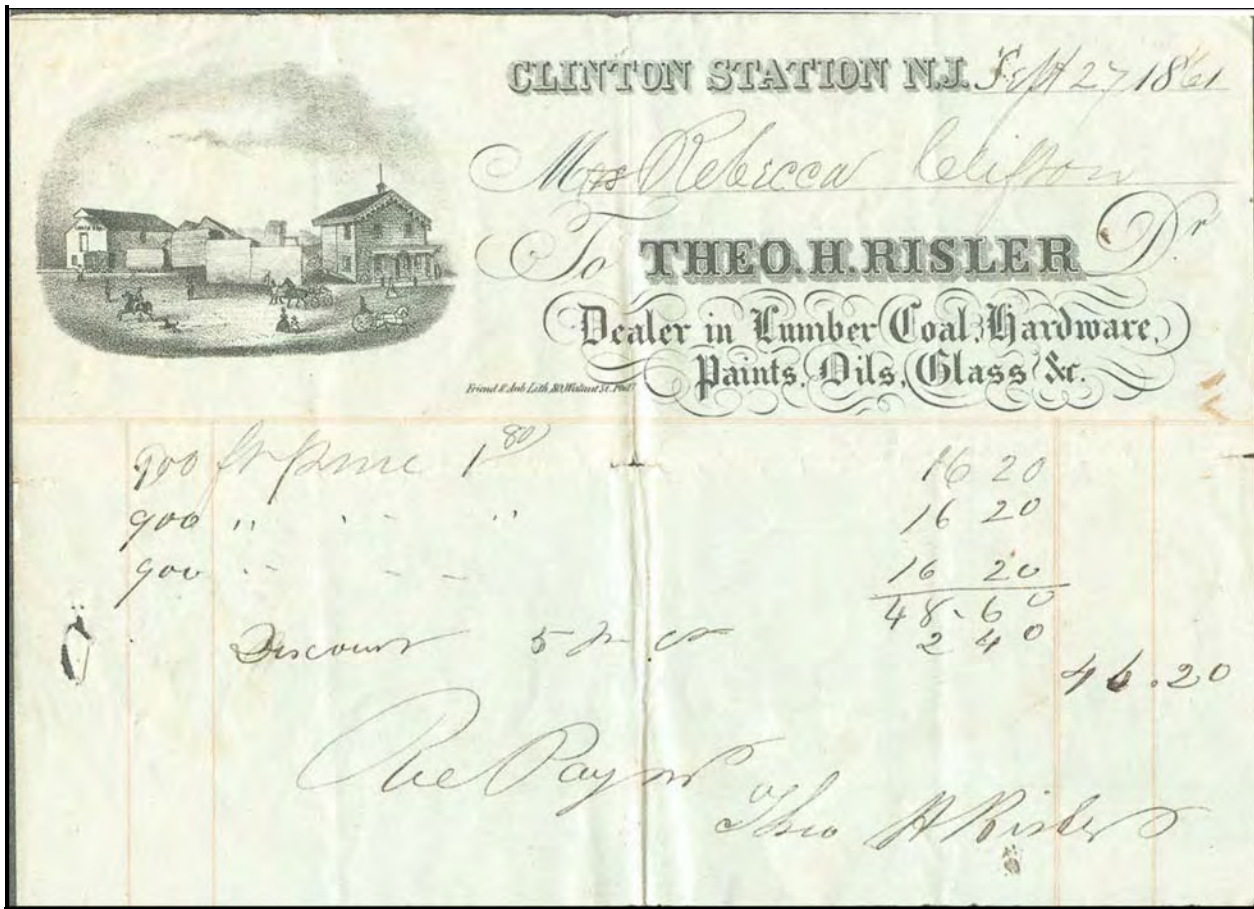 CLINTON STATION N.J. Sept 27 1861
Mrs Rebecca Clifton
To THEO. H. RISLER Dr
Dealer in Lumber Coal, Hardware,
Paints, Oils, Glass &c.
Lith. Walnut St.
900 ft 1 80 16 20
900 " " " 16 20
900 16 20
48.60
Discount 5 2 40
46.20
Rec Paymt
Theo H Risler